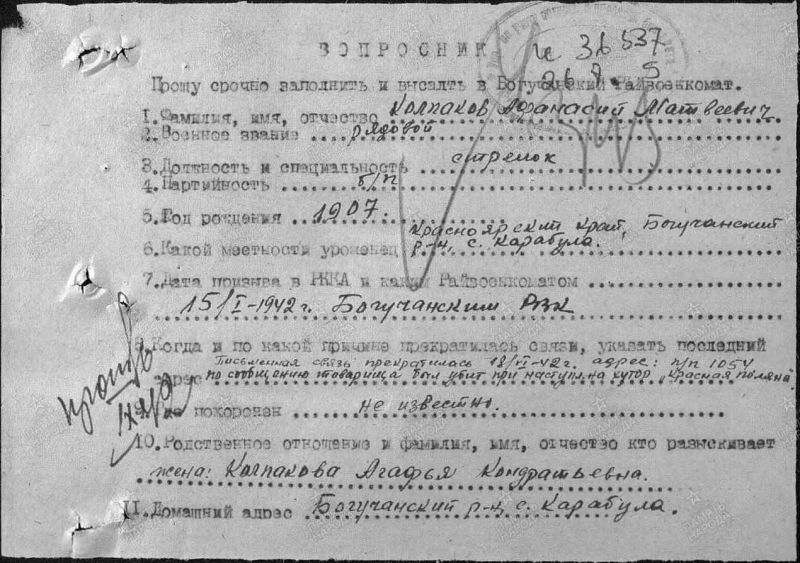 ВОПРОСНИК
№ 36537
Прошу срочно заполнить и высалть в Богучанский Райвоенкомат.
1.Фамилия, имя, отчество Колпаков Афанасий Матвеевич
2.Военное звание рядовой
3.Должность и специальность стрелок
4.Партийность б/п
5.Год рождения 1907.
Красноярский край, Богучанский
6.Какой местности уроженец р-н, с. Карабула.
7.Дата призыва в РККА и каким Райвоенкоматом
15/I-1942г. Богучанским РВК
8.Когда и по какой причине прекратилась связи, указать последний
Письменная связь прекратилась 18/VI-42г. адрес: п/п 1054
адрес по сообщению товарища был убит при наступл. на хутор Красная поляна.
9. похоронен не известно.
10.Родственное отношение и фамилия, имя, отчество кто разыскивает
жена: Колпакова Агафья Кондратьевна.
11.Домашний адрес Богучанский р-н, с. Карабула.